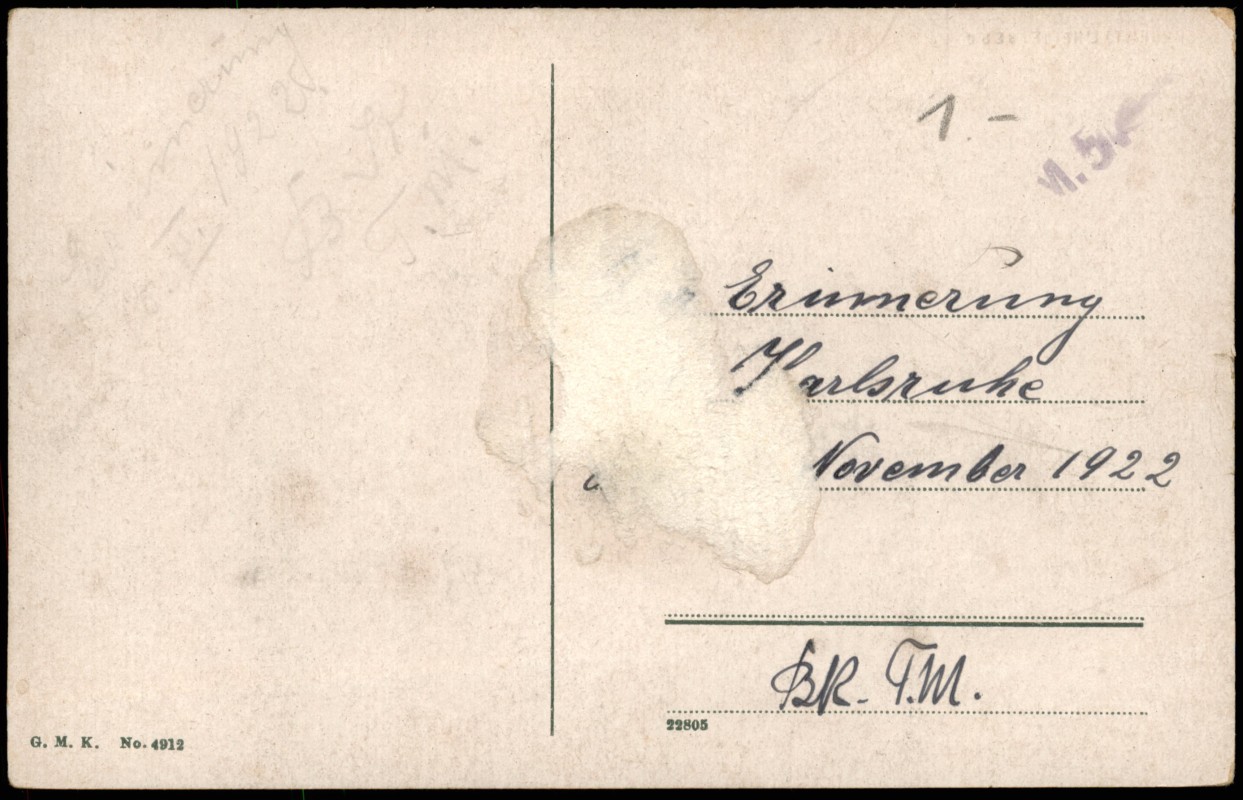 1.-
Erinnerung
Karlsruhe
November 1922
BR. T.M.
22805
G. M. K. No. 4912